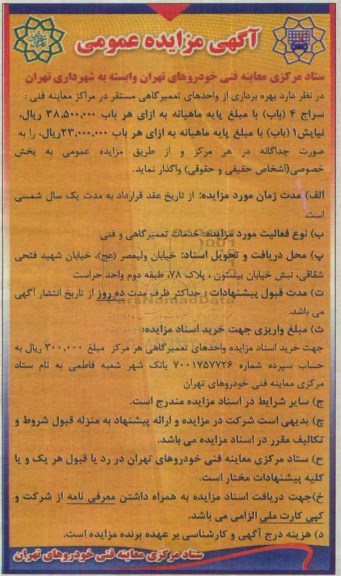 آگهی مزایده عمومی
ستاد مرکزی معاینه فنی خودروهای تهران وابسته به شهرداری تهران
در نظر دارد بهره برداری از واحدهای تعمیرگاهی مستقر در مراکز معاینه فنی :
سراج ۴ (باب) با مبلغ پایه ماهیانه به ازای هر باب ۳۸,۵۰۰,۰۰۰ ریال،
نیایش۱ (باب) با مبلغ پایه ماهیانه به ازای هر باب ۲۳,۰۰۰,۰۰۰ریال، را به
صورت جداگانه در هر مرکز و از طریق مزایده عمومی به بخش
خصوصی(اشخاص حقیقی و حقوقی) واگذار نماید.
الف) مدت زمان مورد مزایده: از تاریخ عقد قرارداد به مدت یک سال شمسی
است.
ب) نوع فعالیت مورد مزایده: خدمات تعمیرگاهی و فنی
پ) محل دریافت و تحویل اسناد: خیابان ولیعصر (عج)، خیابان شهید فتحی
شقاقی، نبش خیابان بیستون ، پلاک ۷۸، طبقه دوم واحد حراست
ت) مدت قبول پیشنهادات : حداکثر ظرف مدت ده روز از تاریخ انتشار آگهی
می باشد.
ث) مبلغ واریزی جهت خرید اسناد مزایده:
جهت خرید اسناد مزایده واحدهای تعمیرگاهی هر مرکز مبلغ ۳۰۰,۰۰۰ ریال به
حساب سپرده شماره ۷۰۰۱۷۵۷۷۲۶ بانک شهر شعبه فاطمی به نام ستاد
مرکزی معاینه فنی خودروهای تهران
ج) سایر شرایط در اسناد مزایده مندرج است.
چ) بدیهی است شرکت در مزایده و ارائه پیشنهاد به منزله قبول شروط و
تکالیف مقرر در اسناد مزایده می باشد.
ح) ستاد مرکزی معاینه فنی خودروهای تهران در رد یا قبول هر یک و یا
کلیه پیشنهادات مختار است.
خ)جهت دریافت اسناد مزایده به همراه داشتن معرفی نامه از شرکت و
کپی کارت ملی الزامی می باشد.
د) هزینه درج آگهی و کارشناسی بر عهده برنده مزایده است.
ستاد مرکزی معاینه فنی خودروهای تهران